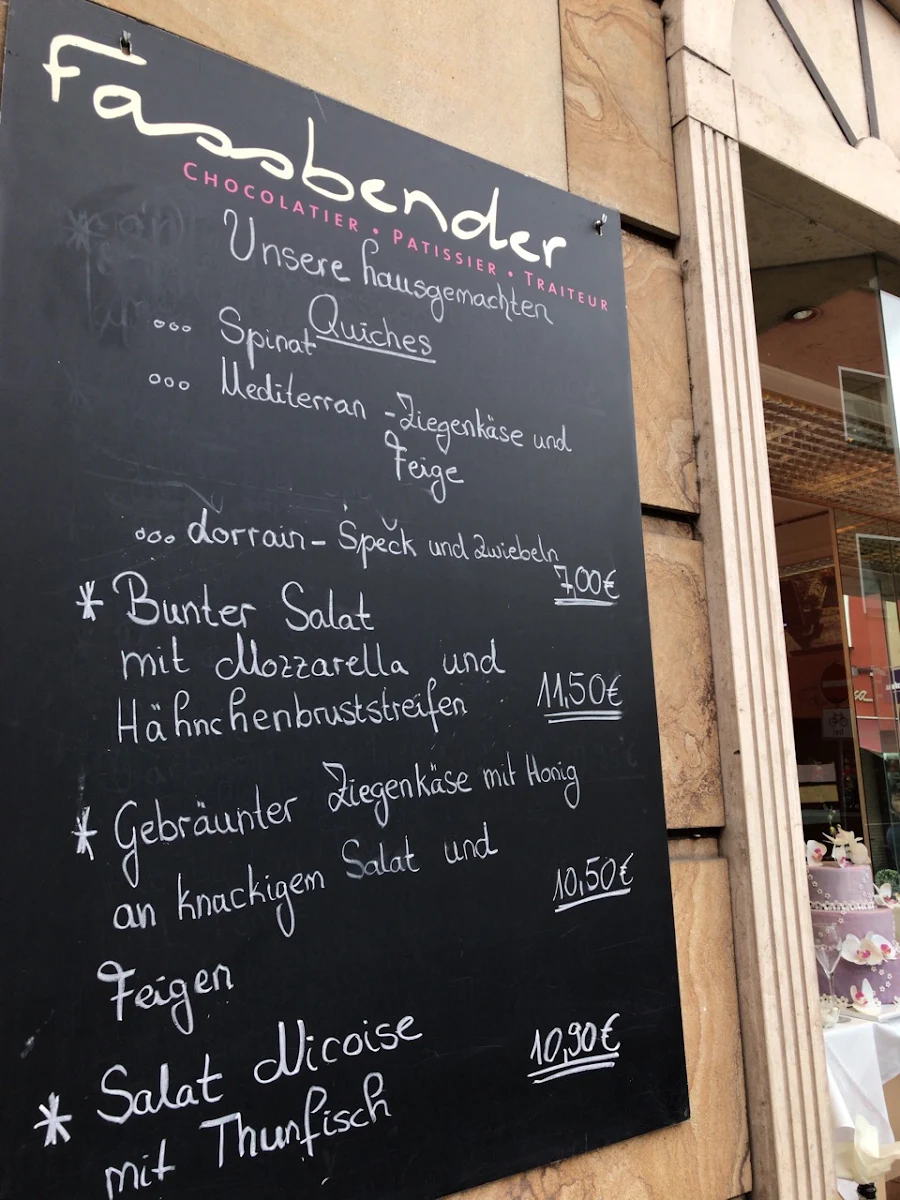 Fassbender
CHOCOLATIER • PATISSIER • TRAITEUR
Unsere hausgemachten
Quiches
ooo Spinat
ooo Mediterran - Ziegenkäse und
Feige
ooo Lorrain - Speck und Zwiebeln
7,00€
* Bunter Salat
mit Mozzarella und
Hähnchenbruststreifen 11,50€
* Gebräunter Ziegenkäse mit Honig
an knackigem Salat und
10,50€
Feigen
* Salat Nicoise 10,90€
mit Thunfisch